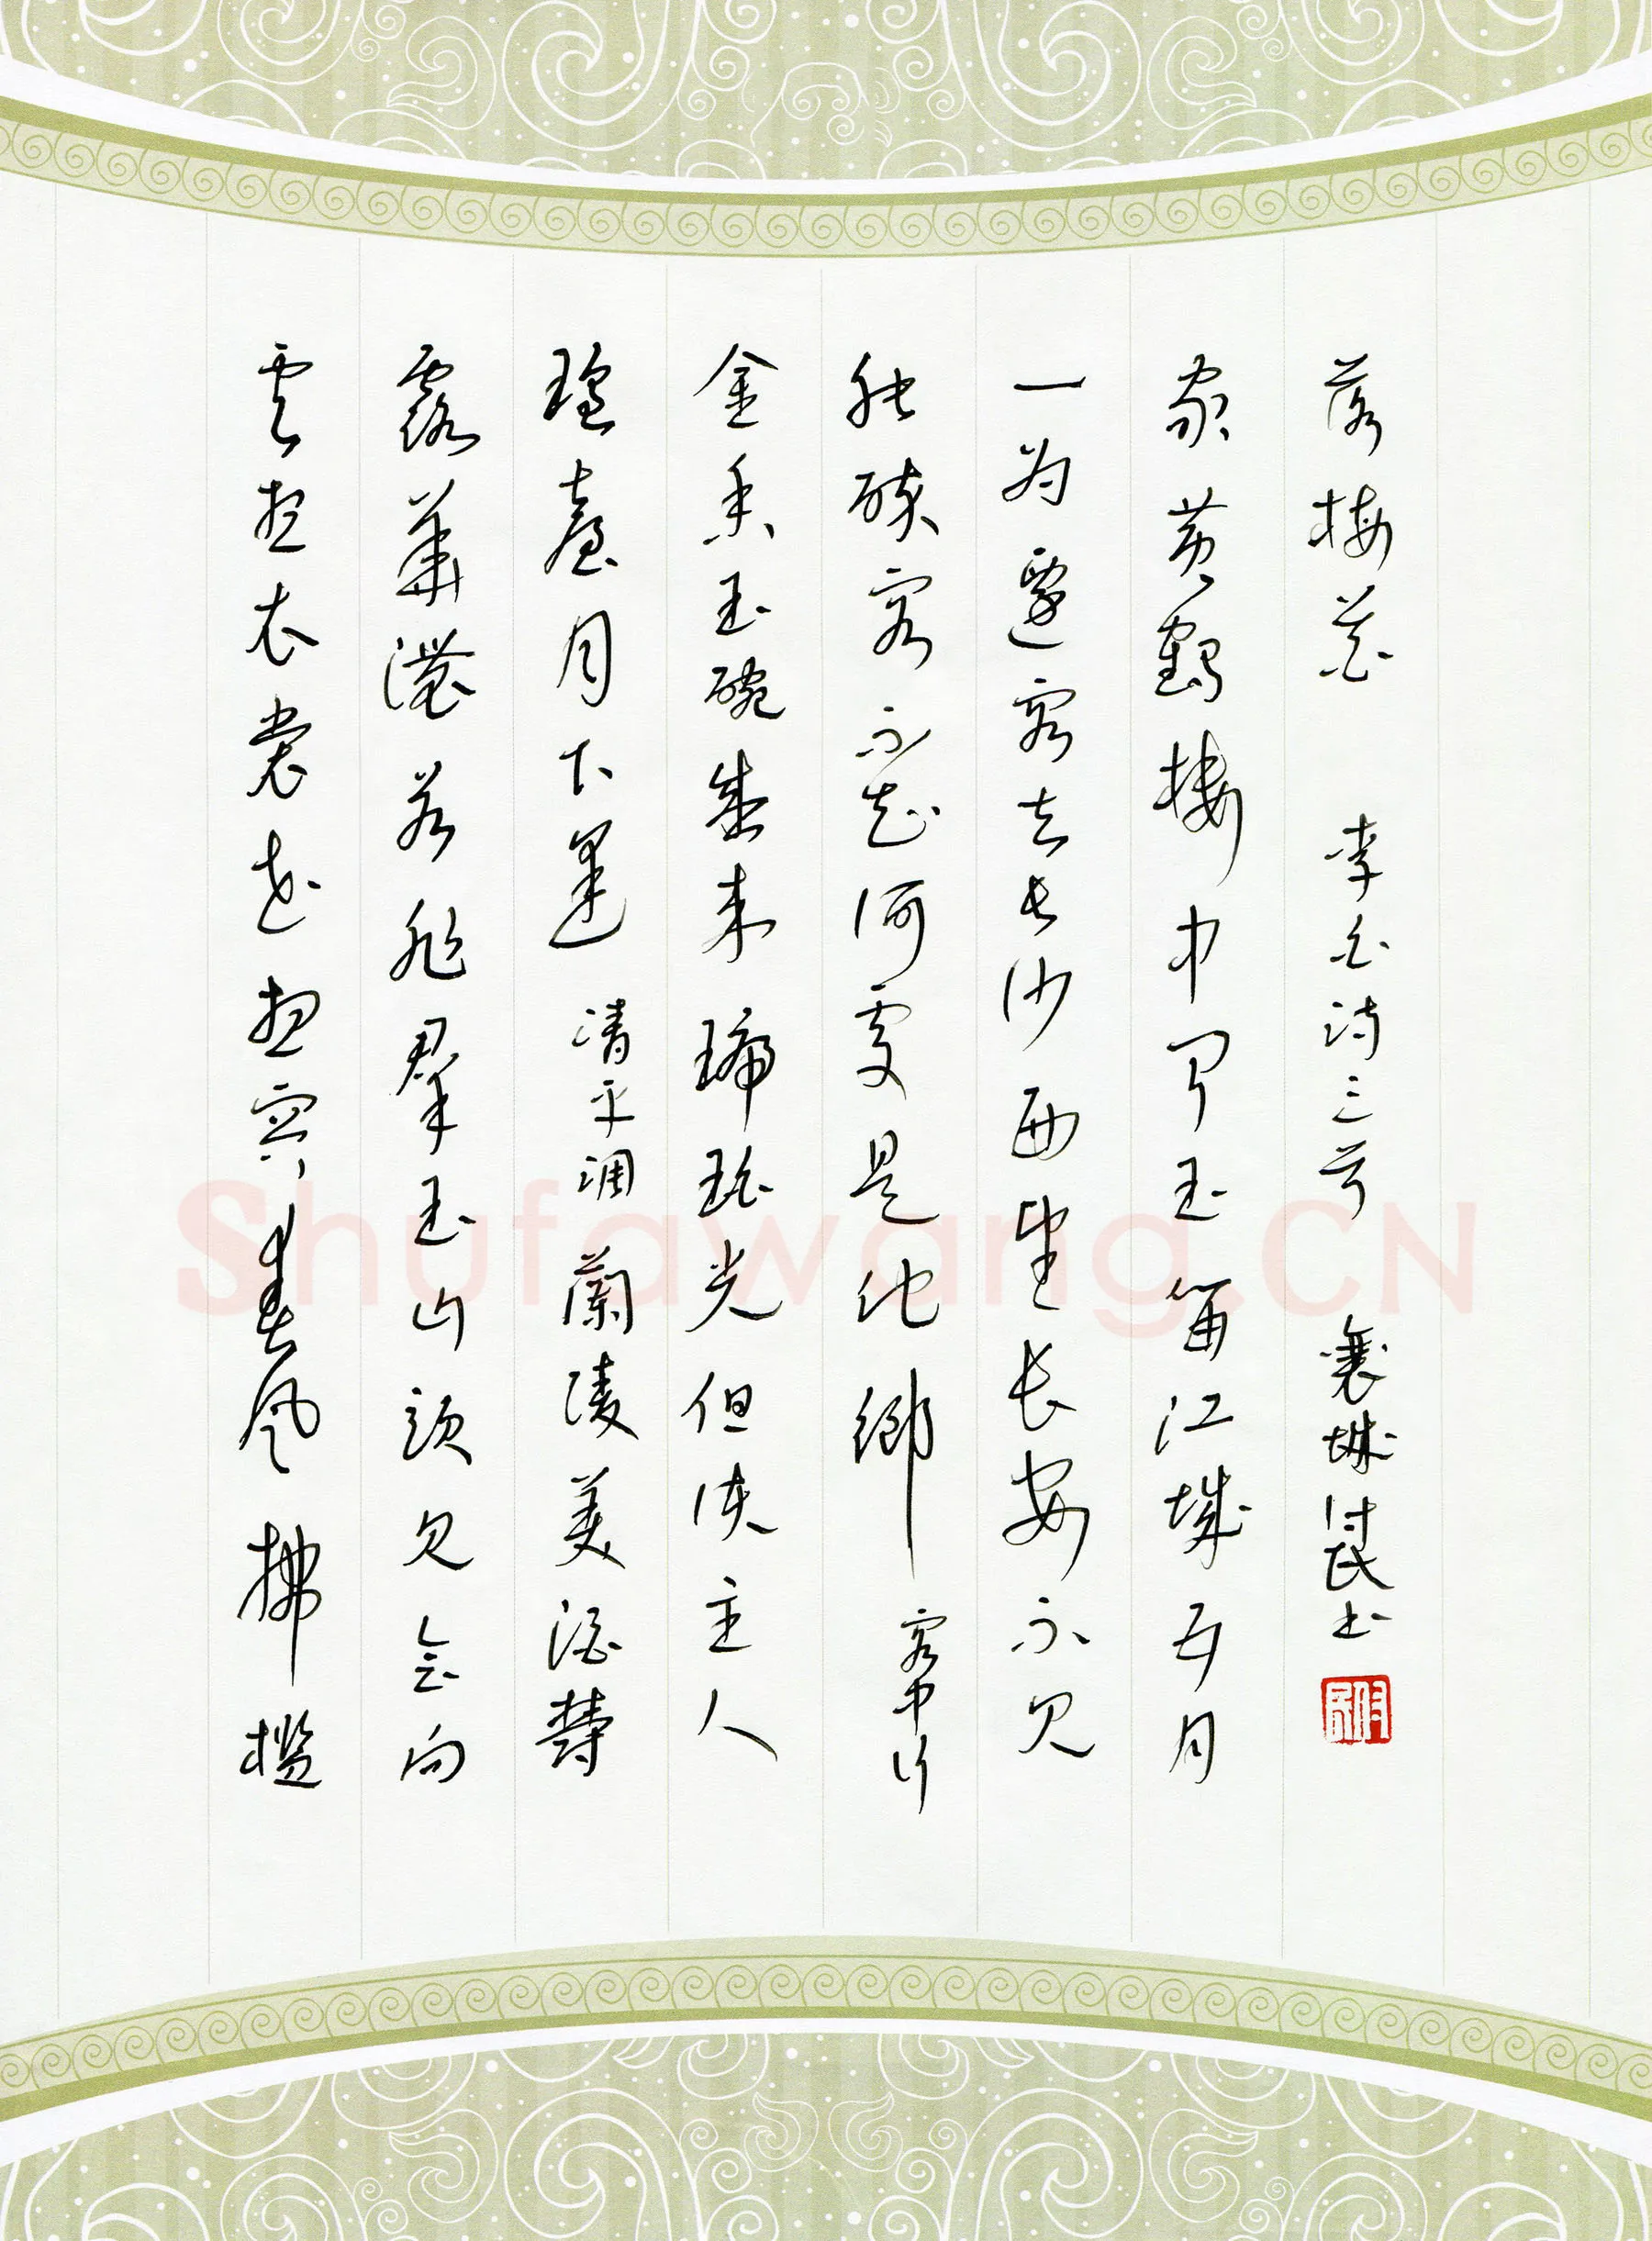 雲想衣裳花想容春风拂檻
露華濃若非羣玉山頭见会向
瑶臺月下逢 清平调 蘭陵美酒鬱
金香玉碗盛来琥珀光但使主人
能醉客不知何處是他鄉 客中行
一为遷客去长沙西望长安不见
家黄鶴楼中吹玉笛江城五月
落梅花 李白诗三首 襄城付民书
Shufawang.CN